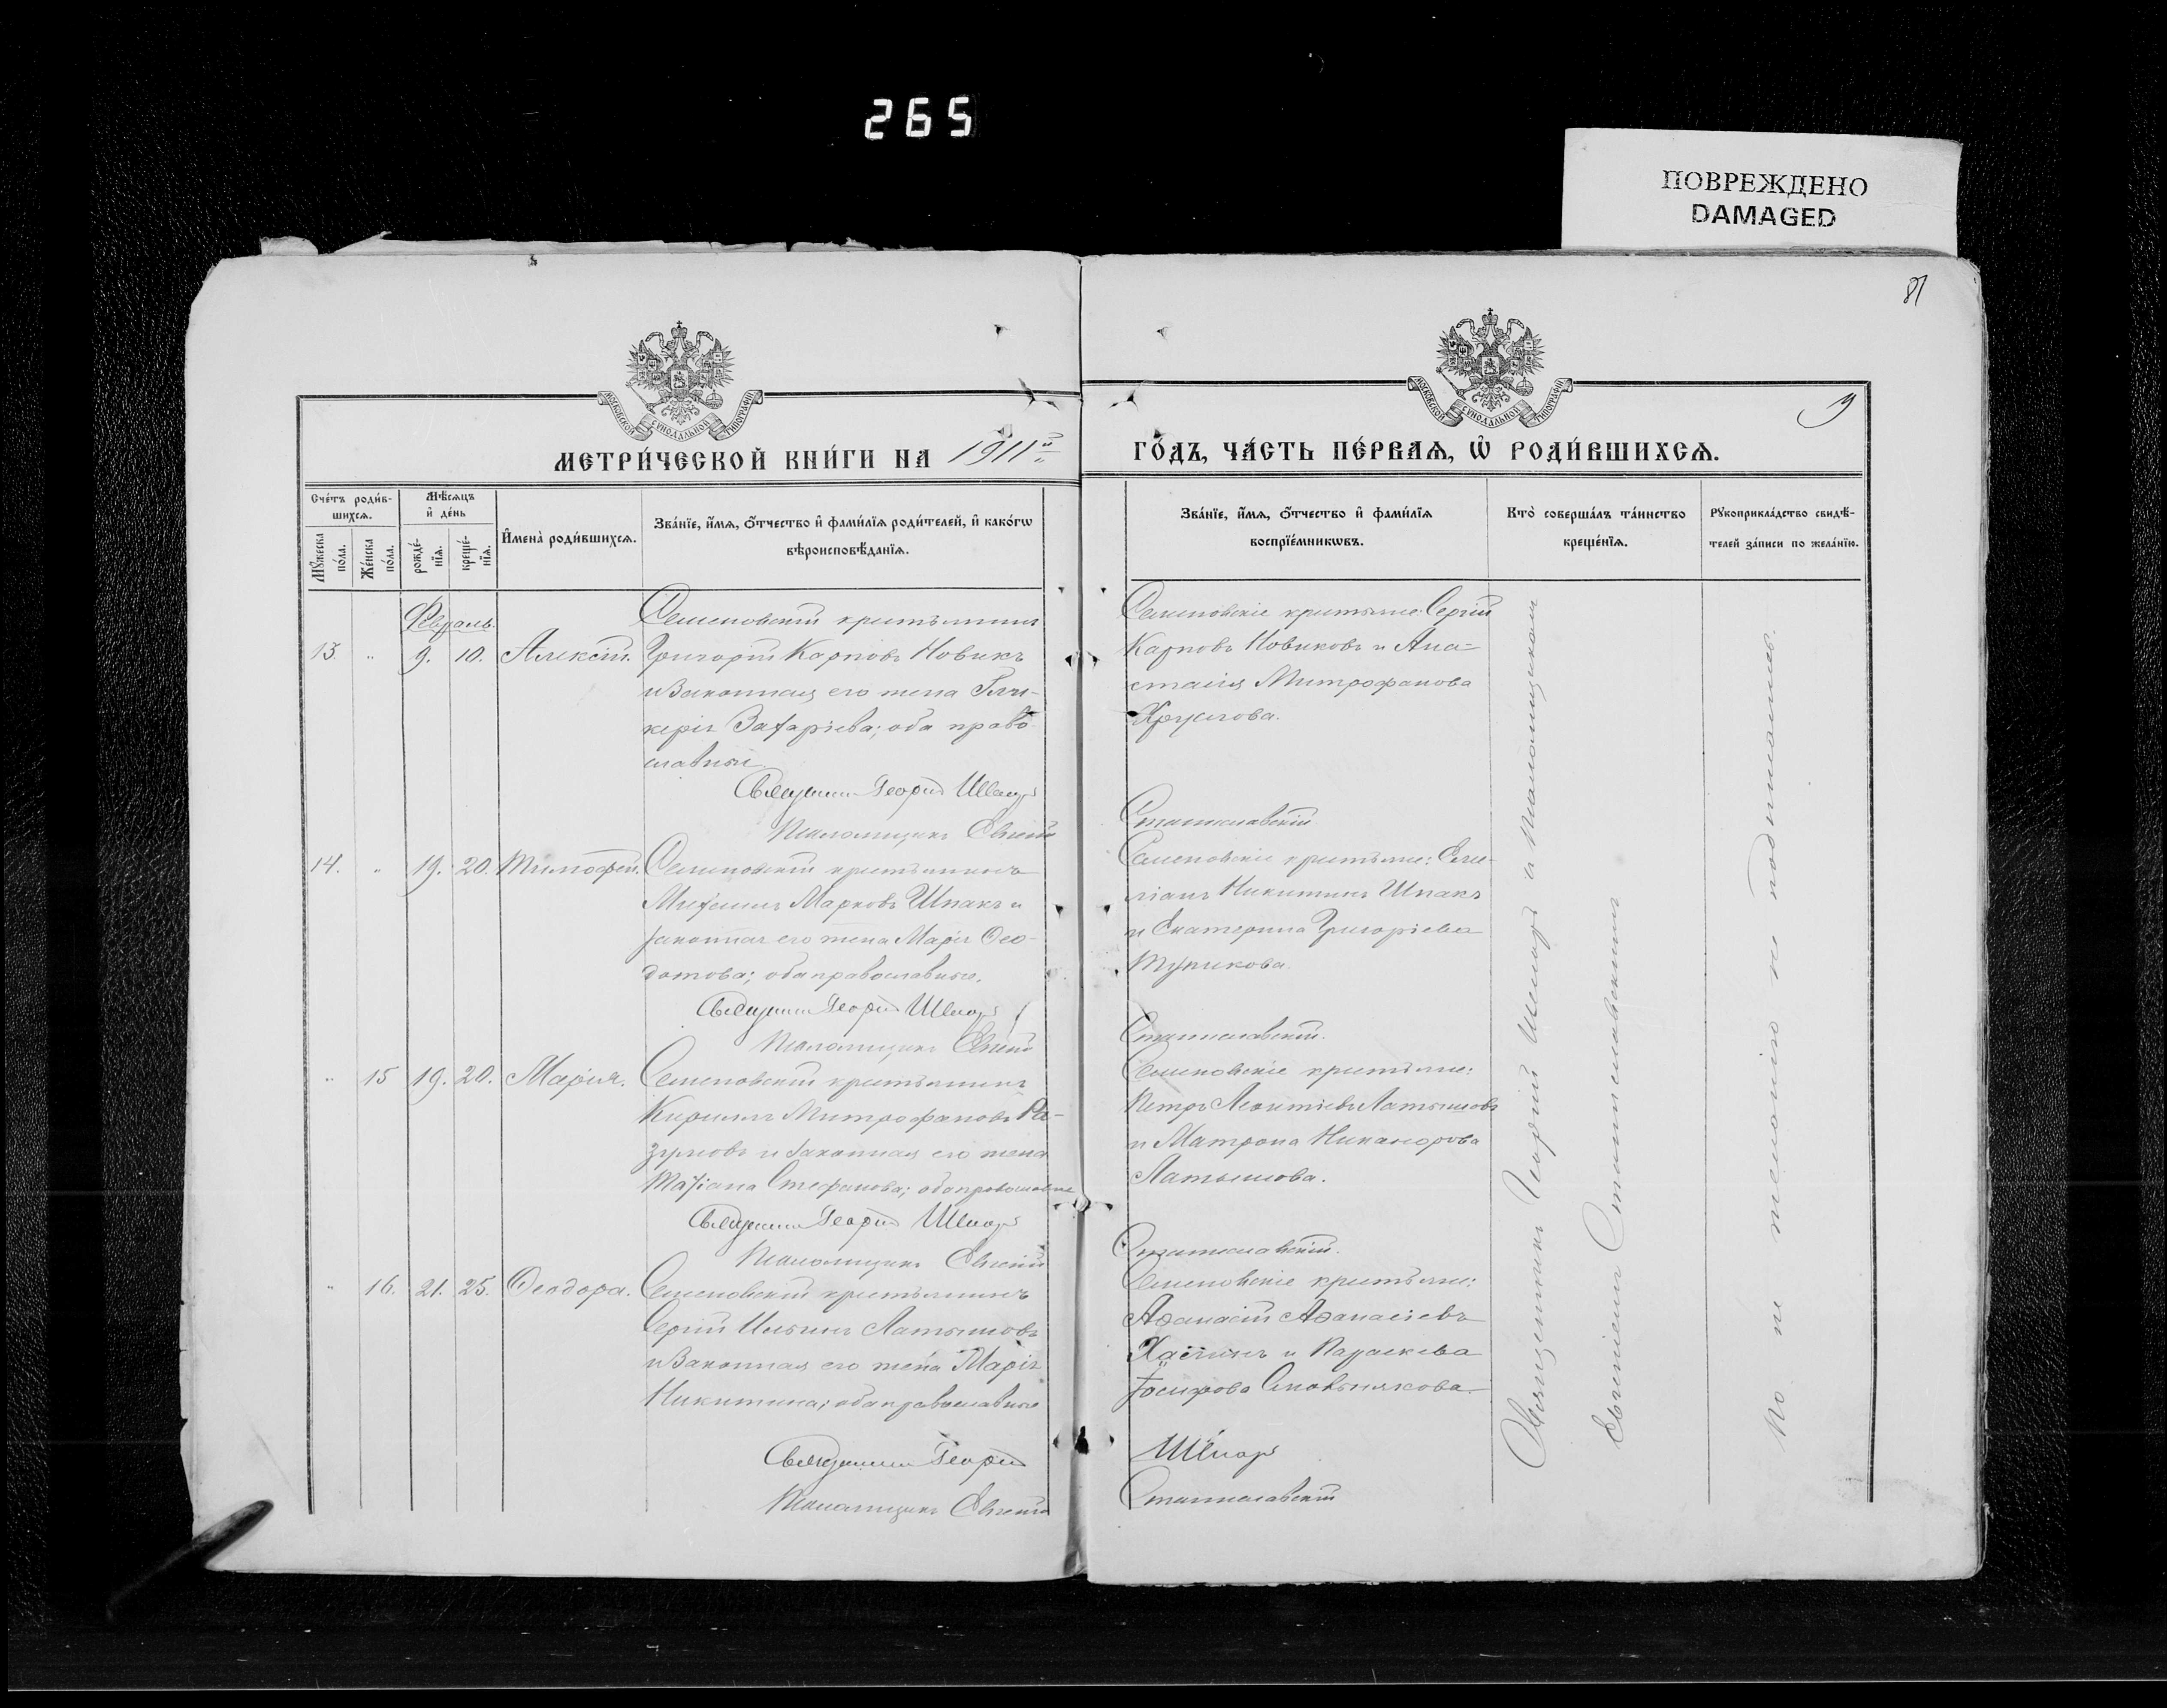 265
ПОВРЕЖДЕНО
DAMAGED
81
9
МОСКОВСКОЙ СУНОДАЛЬНОЙ ТИПОГРАФІИ
МОСКОВСКОЙ СУНОДАЛЬНОЙ ТИПОГРАФІИ
МЕТРИ́ЧЕСКОЙ КНИ́ГИ НА 1911й
ГО́ДЪ, ЧА́СТЬ ПЕ́РВАѦ, Ѡ҆ РОДИ́ВШИХСѦ.
Сче́тъ роди́в-
шихсѧ.
Мꙋ́жеска по́ла.
Же́нска по́ла.
Мѣ́сѧцъ
и҆ де́нь
рожде́-
нїѧ.
креще́-
нїѧ.
И҆мена̀ роди́вшихсѧ.
Зва́нїе, и҆́мѧ, ѻ҆́тчество и҆ фами́лїѧ роди́телей, и҆ како́гѡ
вѣроисповѣ́данїѧ.
Зва́нїе, и҆́мѧ, ѻ҆́тчество и҆ фами́лїѧ
воспрїе́мникѡвъ.
Кто̀ соверша́лъ та́инство
креще́нїѧ.
Рꙋкоприкла́дство свидѣ́-
телей за́писи по жела́нїю.
Февраль.
13. " 9. 10. Алексій.
Семеновскій крестьянинъ
Григорій Карповъ Новикъ
и Законная его жена Гли-
керія Захаріева; оба право
славные.
Священник Георгій Шенгаръ
Псаломщикъ Евгеній
Семеновскіе крестьяне: Сергій
Карповъ Новиковъ и Ана-
стасія Митрофанова
Круглова.
Станиславскій
14. " 19. 20. Тимофей.
Семеновскій крестьянинъ
Михаилъ Марковъ Шпакъ и
законная его жена Марія Ѳео-
дотова; оба православные.
Священник Георгій
Псаломщикъ Евгеній
Семеновскіе крестьяне: Еми-
ліанъ Никитинъ Шпакъ
и Екатерина Григоріева
Тупикова.
Станиславскій.
" 15 19. 20. Марія.
Семеновскій крестьянинъ
Кириллъ Митрофановъ Ра-
зумовъ и законная его жена
Татіана Стефанова; оба православные
Священник Георгій
Псаломщикъ Евгеній
Семеновскіе крестьяне:
Петръ Леонтіевъ Латышовъ
и Матрона Никанорова
Латышова.
Станиславскій.
" 16. 21. 25. Ѳеодора.
Семеновскій крестьянинъ
Сергій Ильинъ Латышовъ
и Законная его жена Марія
Никитина; оба православные
Священник Георгій
Псаломщикъ Евгеній
Семеновскіе крестьяне:
Аѳанасій Аѳанасіевъ
и Параскева
Іосифова
Станиславскій
Священникъ Георгій и Псаломщикомъ
Евгеніемъ Станиславскимъ
По не желанію не подписались.